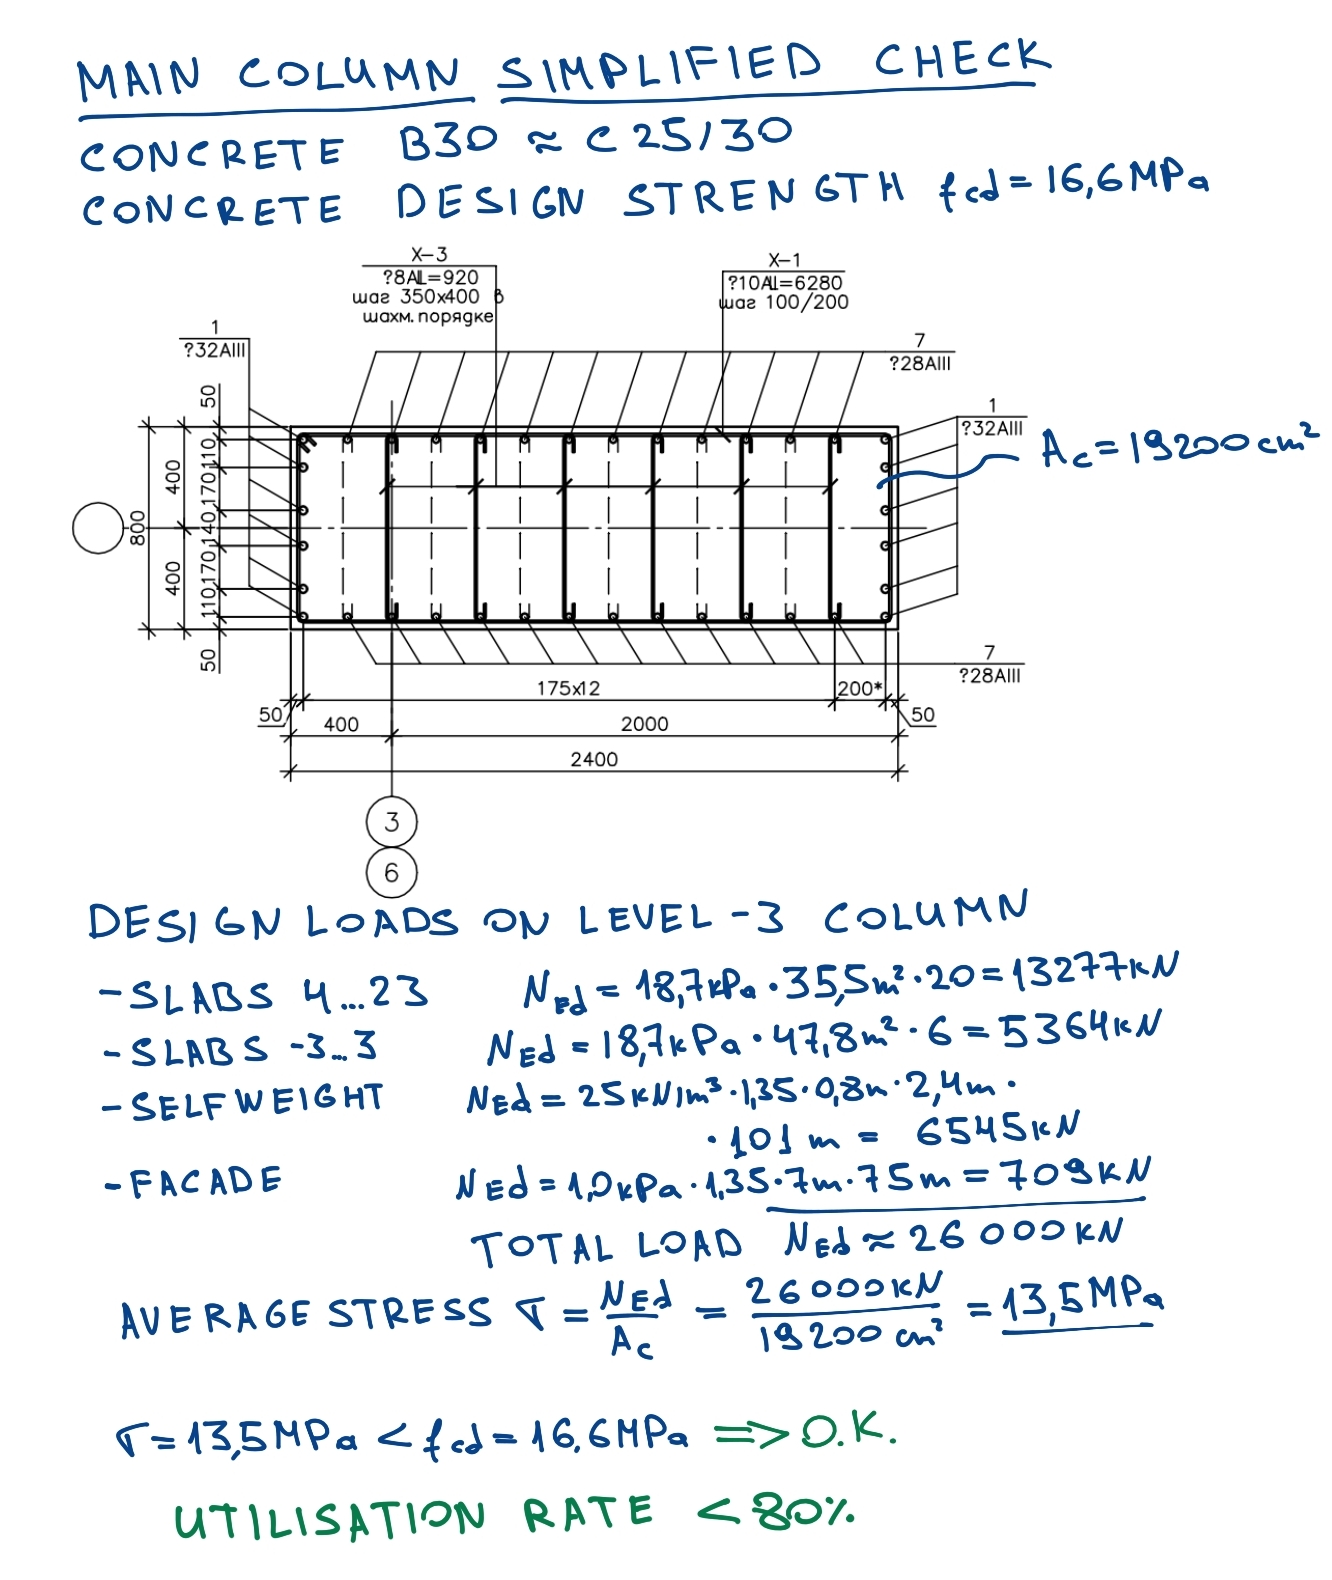 MAIN COLUMN SIMPLIFIED CHECK
CONCRETE B30 ≈ C 25/30
CONCRETE DESIGN STRENGTH fcd = 16,6 MPa
X-3
?8AL=920
шаг 350х400 в
шахм. порядке
X-1
?10AL=6280
шаг 100/200
1
?32AIII
7
?28AIII
1
?32AIII
Ac = 19200 cm²
50
110
170
140
170
110
50
400
400
800
7
?28AIII
175x12
200*
50
50
400
2000
2400
3
6
DESIGN LOADS ON LEVEL -3 COLUMN
- SLABS 4...23 NEd = 18,7 kPa · 35,5 m² · 20 = 13277 kN
- SLABS -3...3 NEd = 18,7 kPa · 47,8 m² · 6 = 5364 kN
- SELFWEIGHT NEd = 25 kN/m³ · 1,35 · 0,8m · 2,4m ·
· 101 m = 6545 kN
- FACADE NEd = 1,0 kPa · 1,35 · 7m · 75m = 709 kN
TOTAL LOAD NEd ≈ 26 000 kN
AVERAGE STRESS σ = NEd / Ac = 26000 kN / 19200 cm² = 13,5 MPa
σ = 13,5 MPa < fcd = 16,6 MPa => O.K.
UTILISATION RATE < 80%